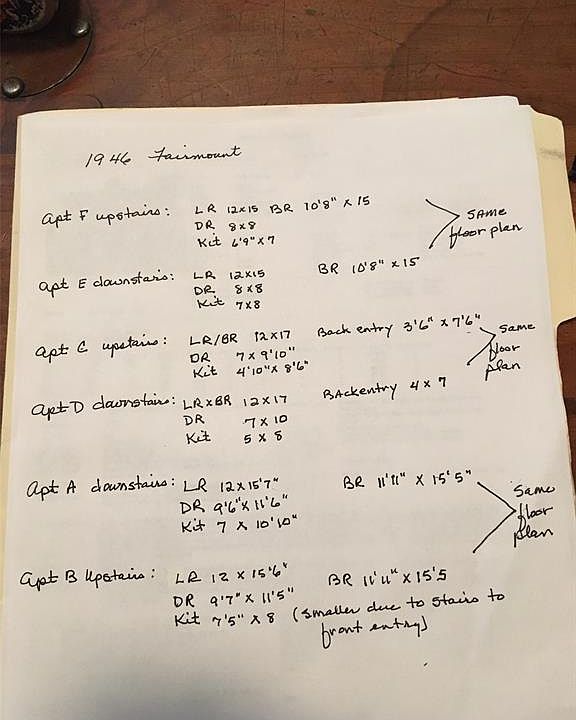 1946 Fairmount
Apt F upstairs: LR 12x15 BR 10'8" x 15
DR 8x8
Kit 6'9" x 7
SAME
floor plan
Apt E downstairs: LR 12x15 BR 10'8" x 15
DR 8x8
Kit 7x8
Apt C upstairs: LR/BR 12x17 Back entry 3'6" x 7'6"
DR 7 x 9'10"
Kit 4'10" x 8'6"
Same
floor
plan
Apt D downstairs: LRxBR 12x17 BAckentry 4 x 7
DR 7 x 10
Kit 5 x 8
Apt A downstairs: LR 12x15'7" BR 11'11" x 15'5"
DR 9'6" x 11'6"
Kit 7 x 10'10"
Same
floor
plan
Apt B Upstairs: LR 12 x 15'6" BR 11'11" x 15'5
DR 9'7" x 11'5"
Kit 7'5" x 8 (smaller due to stairs to
front entry)